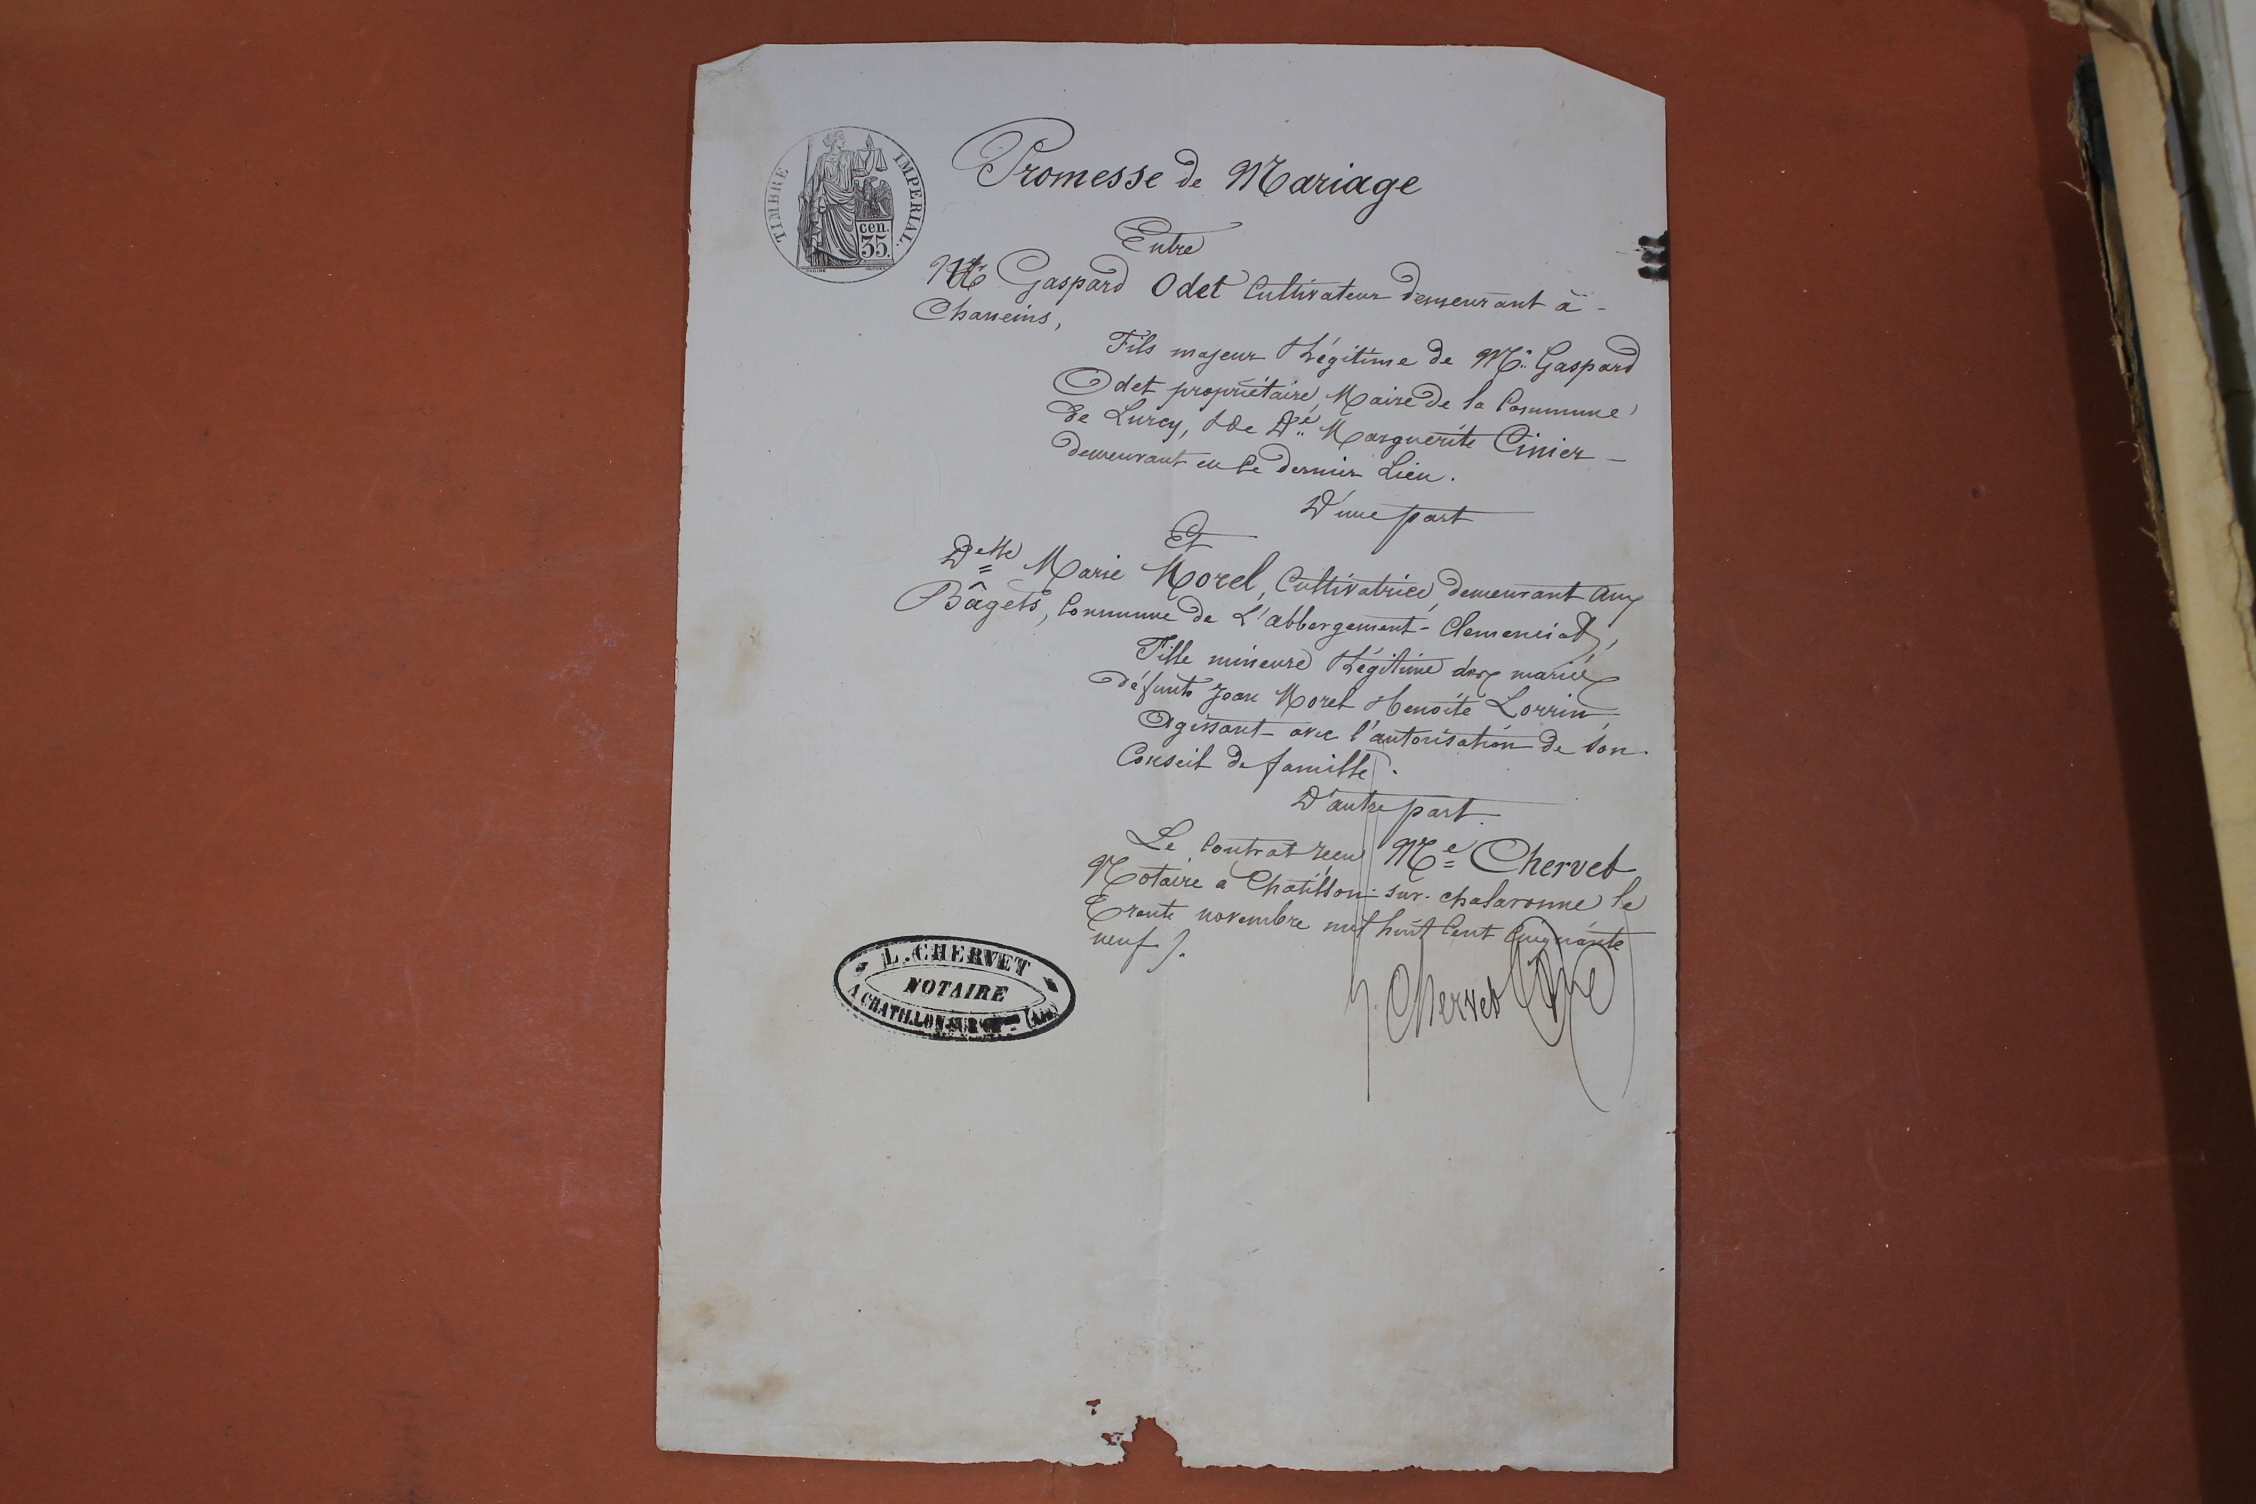 TIMBRE IMPERIAL.
cen.
35.
Promesse de Mariage
Entre
Mr Gaspard Odet Cultivateur demeurant à -
Chaneins,
Fils majeur & Légitime de Mr. Gaspard
Odet propriétaire, Maire de la Commune
de Lurcy, & de De Marguerite Cinier -
demeurant en ce dernier Lieu.
D'une part
Et
Delle Marie Morel, Cultivatrice, demeurant aux
Bâgets, Commune de L'abbergement-Clemenciat,
Fille mineure & Légitime des mariés
défunts Jean Morel & Benoite Lorrin,
Agissant avec l'autorisation de son
Conseil de famille.
D'autre part.
Le Contrat reçu Me Chervet
Notaire à Chatillon-sur-chalaronne le
Trente novembre mil huit Cent Cinquante
neuf /.
Chervet
L. CHERVET
NOTAIRE
A CHATILLON-SUR-